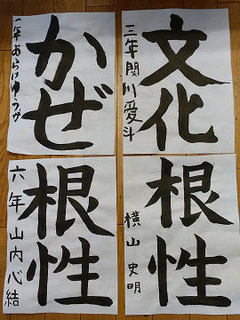 文化
三年関川愛斗
かぜ
一年あらいゆうが
根性
横山史明
根性
六年山内心結